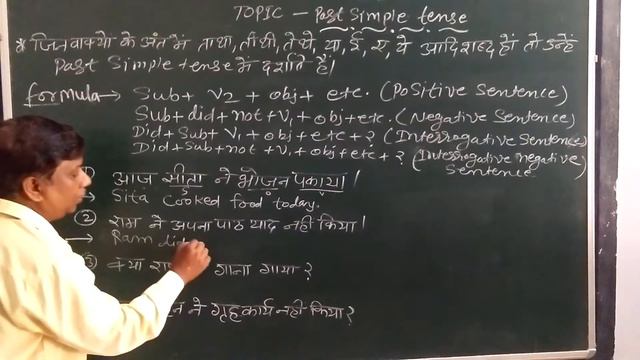 TOPIC - Past Simple tense
* जिन वाक्यो के अंत में ता था, ती थी, ते थे, या, ई, ए, ये आदि शब्द हों तो उन्हें
Past Simple tense में दर्शाते हैं।
formula → Sub + V2 + obj + etc. (Positive Sentence)
Sub + did + not + V1 + obj + etc. (Negative Sentence)
Did + Sub + V1 + obj + etc + ? (Interrogative Sentence)
Did + Sub + not + V1 + obj + etc + ? (Interrogative negative Sentence)
① आज सीता ने भोजन पकाया।
→ Sita Cooked food today.
② राम ने अपना पाठ याद नहीं किया।
→ Ram did
③ क्या गाना गाया?
ने गृहकार्य नहीं किया?